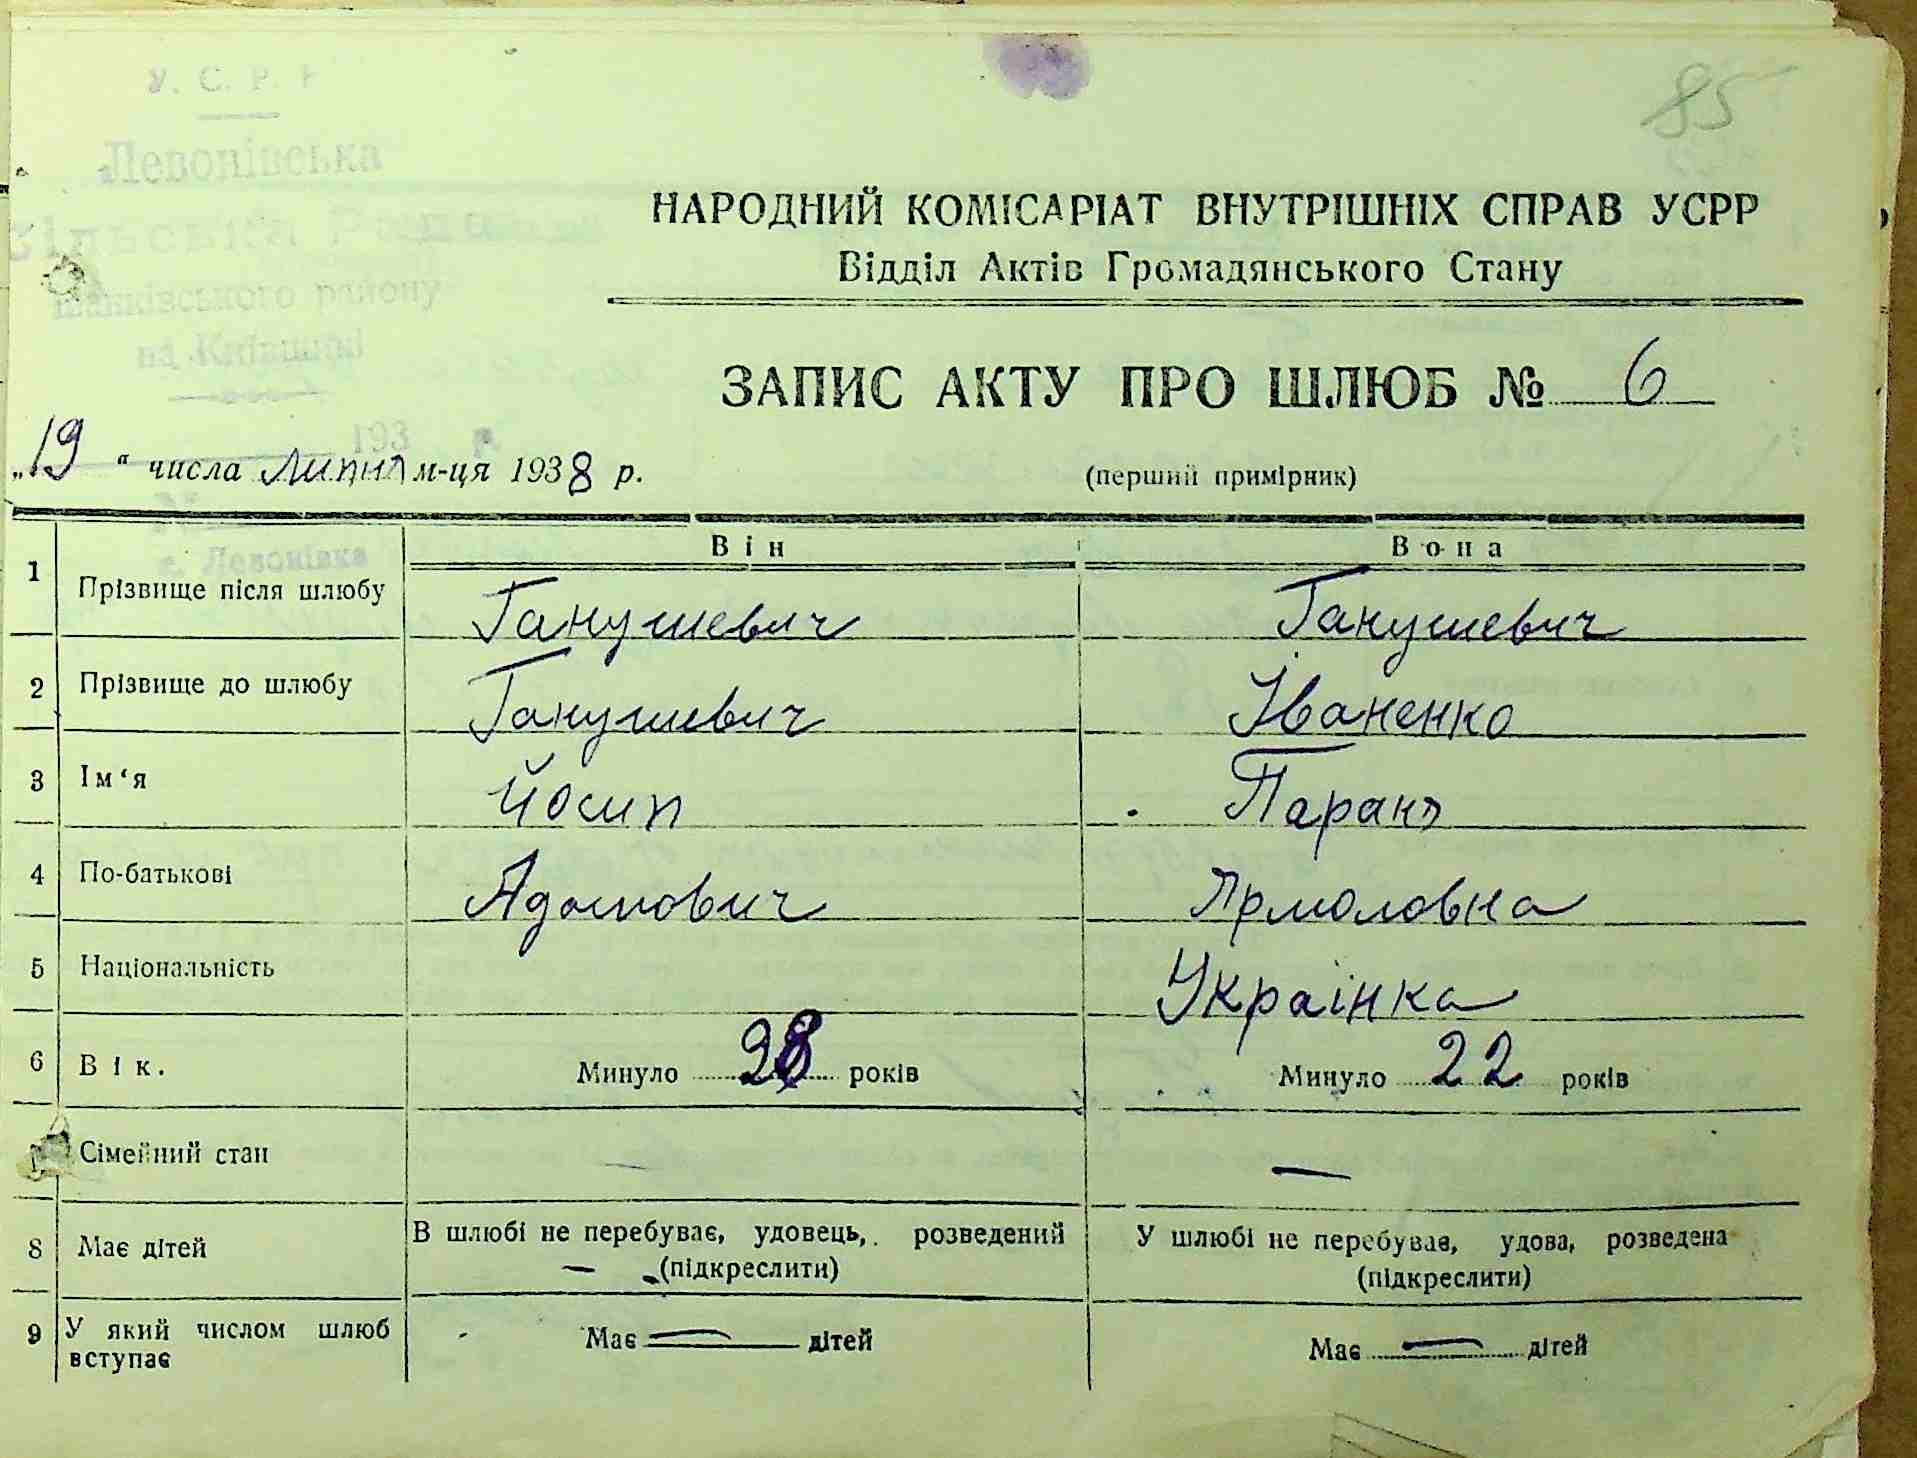 85
У. С. Р. Р
Левонівська
сільська Рада
Іванківського району
на Київщині
193 р.
с. Левонівка
НАРОДНИЙ КОМІСАРІАТ ВНУТРІШНІХ СПРАВ УСРР
Відділ Актів Громадянського Стану
ЗАПИС АКТУ ПРО ШЛЮБ № 6
„19“ числа липня м-ця 1938 р.
(перший примірник)
Він Вона
1 Прізвище після шлюбу Ганушевич Ганушевич
2 Прізвище до шлюбу Ганушевич Іваненко
3 Ім‘я Йосип Параня
4 По-батькові Адамович Ярмоловна
5 Національність Украінка
6 Вік. Минуло 28 років Минуло 22 років
Сімейний стан — —
8 Має дітей В шлюбі не перебуває, удовець, розведений У шлюбі не перебував, удова, розведена
— (підкреслити) (підкреслити)
9 У який числом шлюб Має — дітей Має — дітей
вступає